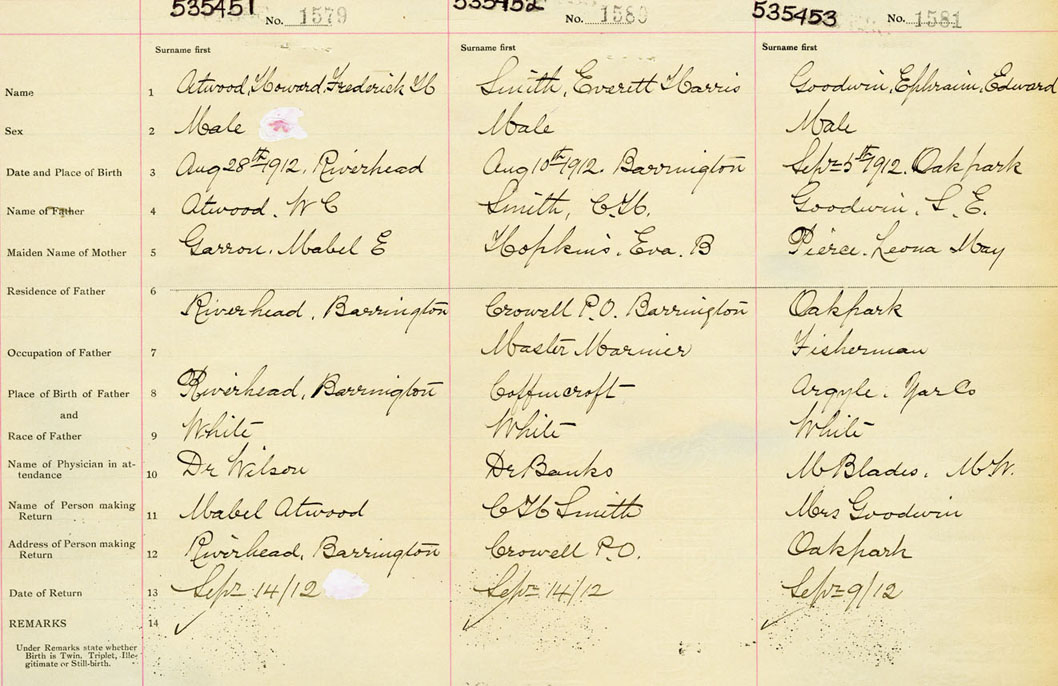 535451 No. 1579 535452 No. 1580 535453 No. 1581
Surname first Surname first Surname first
Name 1 Atwood, Howard, Frederick H Smith, Everett Harris Goodwin, Ephraim, Edward
Sex 2 Male Male Male
Date and Place of Birth 3 Aug 28th 1912. Riverhead Aug 10th 1912. Barrington Sept 5th 1912. Oakpark
Name of Father 4 Atwood. W C Smith, C.H. Goodwin. S. E.
Maiden Name of Mother 5 Garron. Mabel E Hopkins. Eva. B Pierce. Leona May
Residence of Father 6 Riverhead, Barrington Crowell P.O. Barrington Oakpark
Occupation of Father 7 Master Mariner Fisherman
Place of Birth of Father 8 Riverhead, Barrington Coffincroft Argyle. Yar Co
and
Race of Father 9 White White White
Name of Physician in at-
tendance 10 Dr Wilson Dr Banks M Blades. M W.
Name of Person making
Return 11 Mabel Atwood C H Smith Mrs Goodwin
Address of Person making
Return 12 Riverhead, Barrington Crowell P.O. Oakpark
Date of Return 13 Sept 14/12 Sept 14/12 Sept 9/12
REMARKS 14 ✓ ✓ ✓
Under Remarks state whether
Birth is Twin. Triplet, Ille-
gitimate or Still-birth.